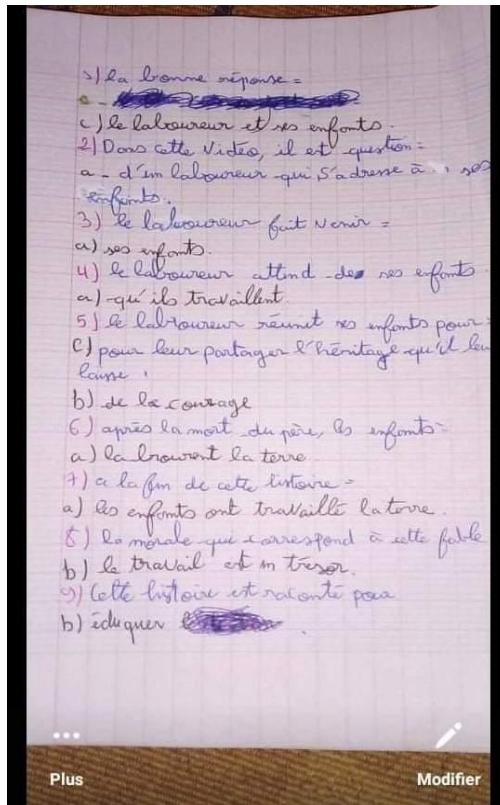 1) la bonne réponse =
c) le laboureur et ses enfants.
2) Dans cette Vidéo, il est question =
a - d'un laboureur qui s'adresse à ses
enfants.
3) le laboureur fait venir =
a) ses enfants.
4) le laboureur attend de ses enfants
a) qu'ils travaillent.
5) le laboureur réunit ses enfants pour =
c) pour leur partager l'héritage qu'il leu
laisse.
b) de la courage
6) après la mort du père, les enfants =
a) labourent la terre
7) a la fin de cette listoire =
a) les enfants ont travaillé la terre.
8) la morale qui correspond à cette fable
b) le travail est un trésor.
9) Cette histoire est raconté pour
b) éduquer
Plus
Modifier